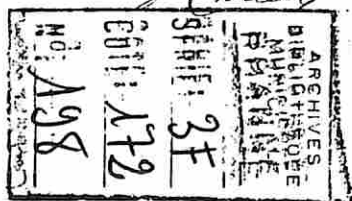 ARCHIVES
BIBLIOTHEQUE
MUNICIPALE
SERIE: 3F
172
NO: 198